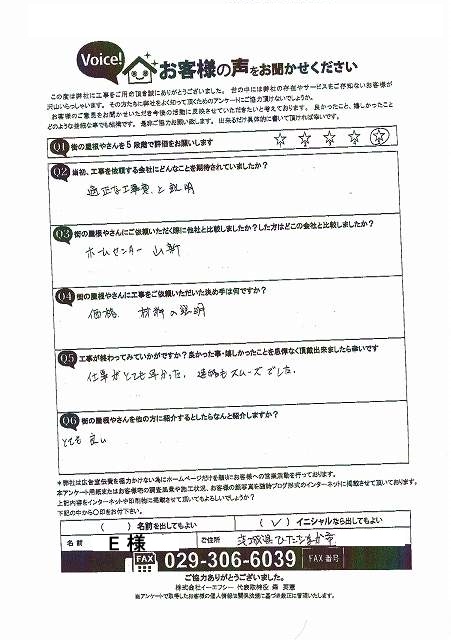 Voice!
お客様の声をお聞かせください
この度は弊社に工事をご用の頂き誠にありがとうございました。世の中には弊社の存在やサービスをご存知ないお客様が
沢山いらっしゃいます。その方たちに弊社をよく知って頂くためのアンケートにご協力頂けないでしょうか。
お客様のご意見をお聞かせいただき今後の活動に反映させていただきたいと考えております。良かったこと、嬉しかったこと
どのような些細な事でも結構です。是非ご協力お願い致します。出来るだけ具体的に書いて頂ければ幸いです。
Q1 街の屋根やさんを5段階で評価をお願いします
Q2 当初、工事を依頼する会社にどんなことを期待されていましたか?
適正な工事費と説明
Q3 街の屋根やさんにご依頼いただく際に他社と比較しましたか?した方はどこの会社と比較しましたか?
ホームセンター 山新
Q4 街の屋根やさんに工事をご依頼いただいた決め手は何ですか?
価格、材料の説明
Q5 工事が終わってみていかがですか?良かった事・嬉しかったことを忌憚なく頂戴出来ましたら幸いです
仕事がとても早かった、連絡もスムーズでした。
Q6 街の屋根やさんを他の方に紹介するとしたらなんと紹介しますか?
とても良い
*弊社は広告宣伝費を極力かけない為にホームページだけを頼りにお客様への営業活動を行っております。
本アンケート用紙またはお客様宅の調査風景や施工状況、お客様の顔写真を随時ブログ形式のインターネットに掲載させて頂いております。
上記内容をインターネットや印刷物に掲載させて頂いてもよろしいでしょうか?
下記の中から○印をお付け下さい。
( ) 名前を出してもよい ( ✓ ) イニシャルなら出してもよい
名前 E様 ご住所 茨城県ひたちなか市
FAX 029-306-6039 FAX番号
ご協力ありがとうございました。
株式会社イーエフシー 代表取締役 森 英憲
当アンケートで取得したお客様の個人情報は関係法規に基づき厳正に管理いたします。